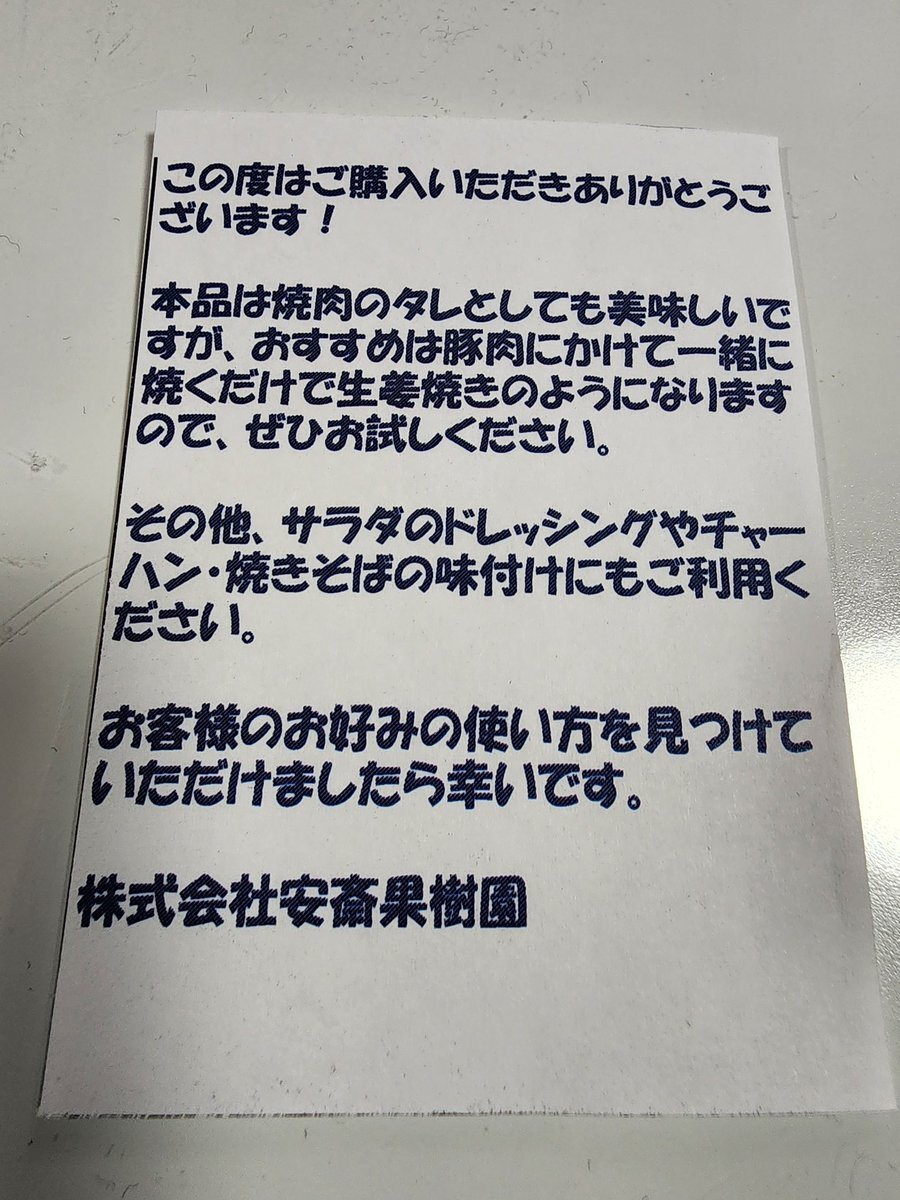 この度はご購入いただきありがとうご
ざいます！
本品は焼肉のタレとしても美味しいで
すが、おすすめは豚肉にかけて一緒に
焼くだけで生姜焼きのようになります
ので、ぜひお試しください。
その他、サラダのドレッシングやチャー
ハン・焼きそばの味付けにもご利用く
ださい。
お客様のお好みの使い方を見つけて
いただけましたら幸いです。
株式会社安斎果樹園